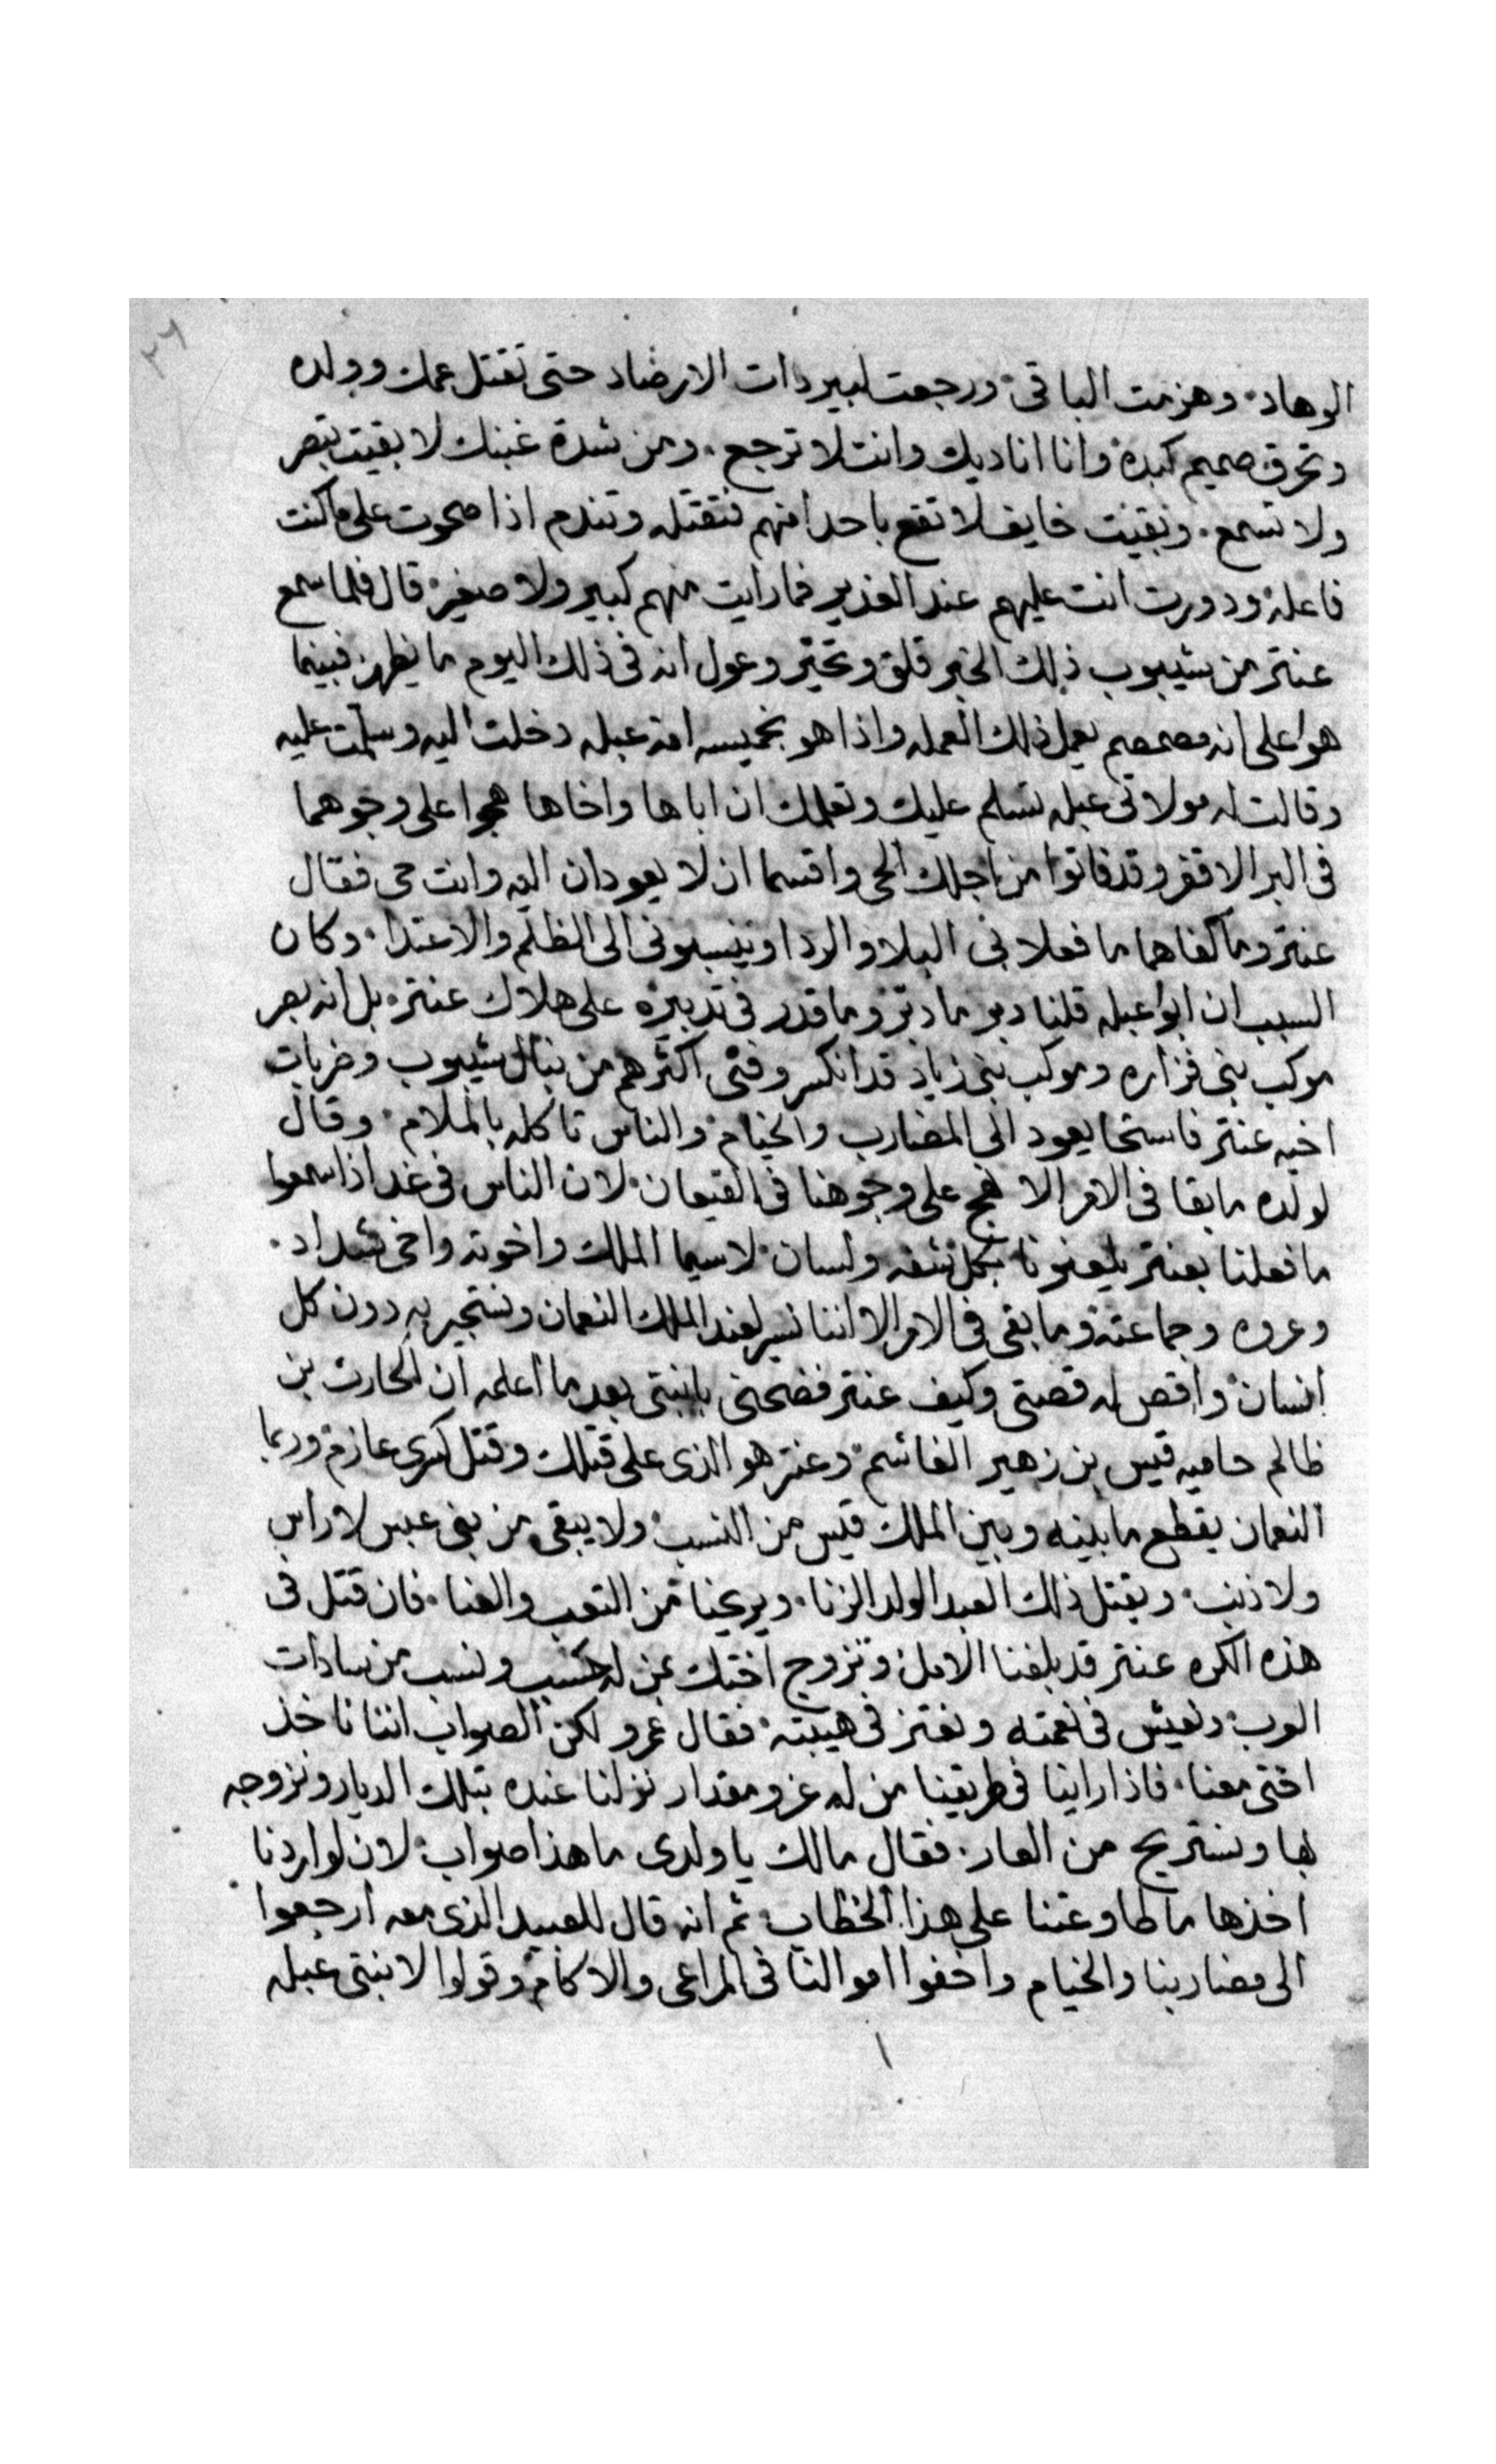 ٢٦
الوهاد۰ وهزمت الباقى۰ ورجعت لبير ذات الارضاد حتى تقتل عمك وولده
وتحرق صميم كبده وانا اناديك وانت لا ترجع۰ ومن شدة غبنك لا بقيت تبصر
ولا تسمع۰ وبقيت خايف لا تقع باحدا منهم فتقتله وتندم اذا صحوت على ما كنت
فاعله۰ ودورت انت عليهم عند الغدير فما رايت منهم كبير ولا صغير۰ قال فلما سمع
عنتر من شيبوب ذلك الخبر قلق وتحير وعول انه فى ذلك اليوم ما يظهر۰ فبينما
هوا على انه مصمصم يعمل ذلك العمله واذا هو بخميسه امة عبله دخلت اليه وسلمت عليه
وقالت له مولاتى عبله تسلم عليك وتعلمك ان اباها واخاها هجوا على وجوهما
فى البر الاقفر وقد فاتوا من اجلك الحى واقسما ان لا يعودان اليه وانت حى فقال
عنتر وما كفاهما ما فعلا بى البلا والردا وينسبونى الى الظلم والاعتدا۰ وكان
السبب ان ابوا عبله قلنا دبر ما دبر وما قدر فى تدبيره على هلاك عنتر۰ بل انه بصر
موكب بنى فزاره وموكب بنى زياد قد انكسر وفنى اكثرهم من نبال شيبوب وضربات
اخيه عنتر فاستحا يعود الى المضارب والخيام۰ والناس تاكله بالملام۰ وقال
لولده ما بقا فى الامر الا نهج على وجوهنا فى القيعان۰ لان الناس فى غد اذا سمعوا
ما فعلنا بعنتر يلعنونا بكل شفه ولسان۰ لاسيما الملك واخوته واخى شداد۰
وعروه وجماعته وما بقى فى الامر الا اننا نسير لعند الملك النعمان ونستجير به دون كل
انسان۰ واقص له قصتى وكيف عنتر فضحنى بابنتى بعد ما اعلمه ان الحارث بن
ظالم حاميه قيس بن زهير الغاشم۰ وعنتر هو الذى على قتلك وقتل كسرى عازم۰ وربما
النعمان يقطع ما بينه وبين الملك قيس من النسب۰ ولا يبقى من بنى عبس لا راس
ولا ذنب۰ ويقتل ذلك العبد الولد الزنا۰ ويريحنا من التعب والعنا۰ فان قتل فى
هذه الكره عنتر قد بلغنا الامل۰ ونزوج اختك بمن له حسب ونسب من سادات
العرب۰ ونعيش فى نعمته ونعتز فى هيبته۰ فقال عمرو لكن الصواب اننا ناخذ
اختى معنا۰ فاذا راينا فى طريقنا من له عز ومقدار نزلنا عنده بتلك الديار ونزوجه
بها ونستريح من العار۰ فقال مالك يا ولدى ما هذا صواب۰ لان لو اردنا
اخذها ما طاوعتنا على هذا الخطاب۰ ثم انه قال للعبيد الذى معه ارجعوا
الى مضاربنا والخيام واخفوا اموالنا فى المراعى والاكام۰ وقولوا لابنتى عبله